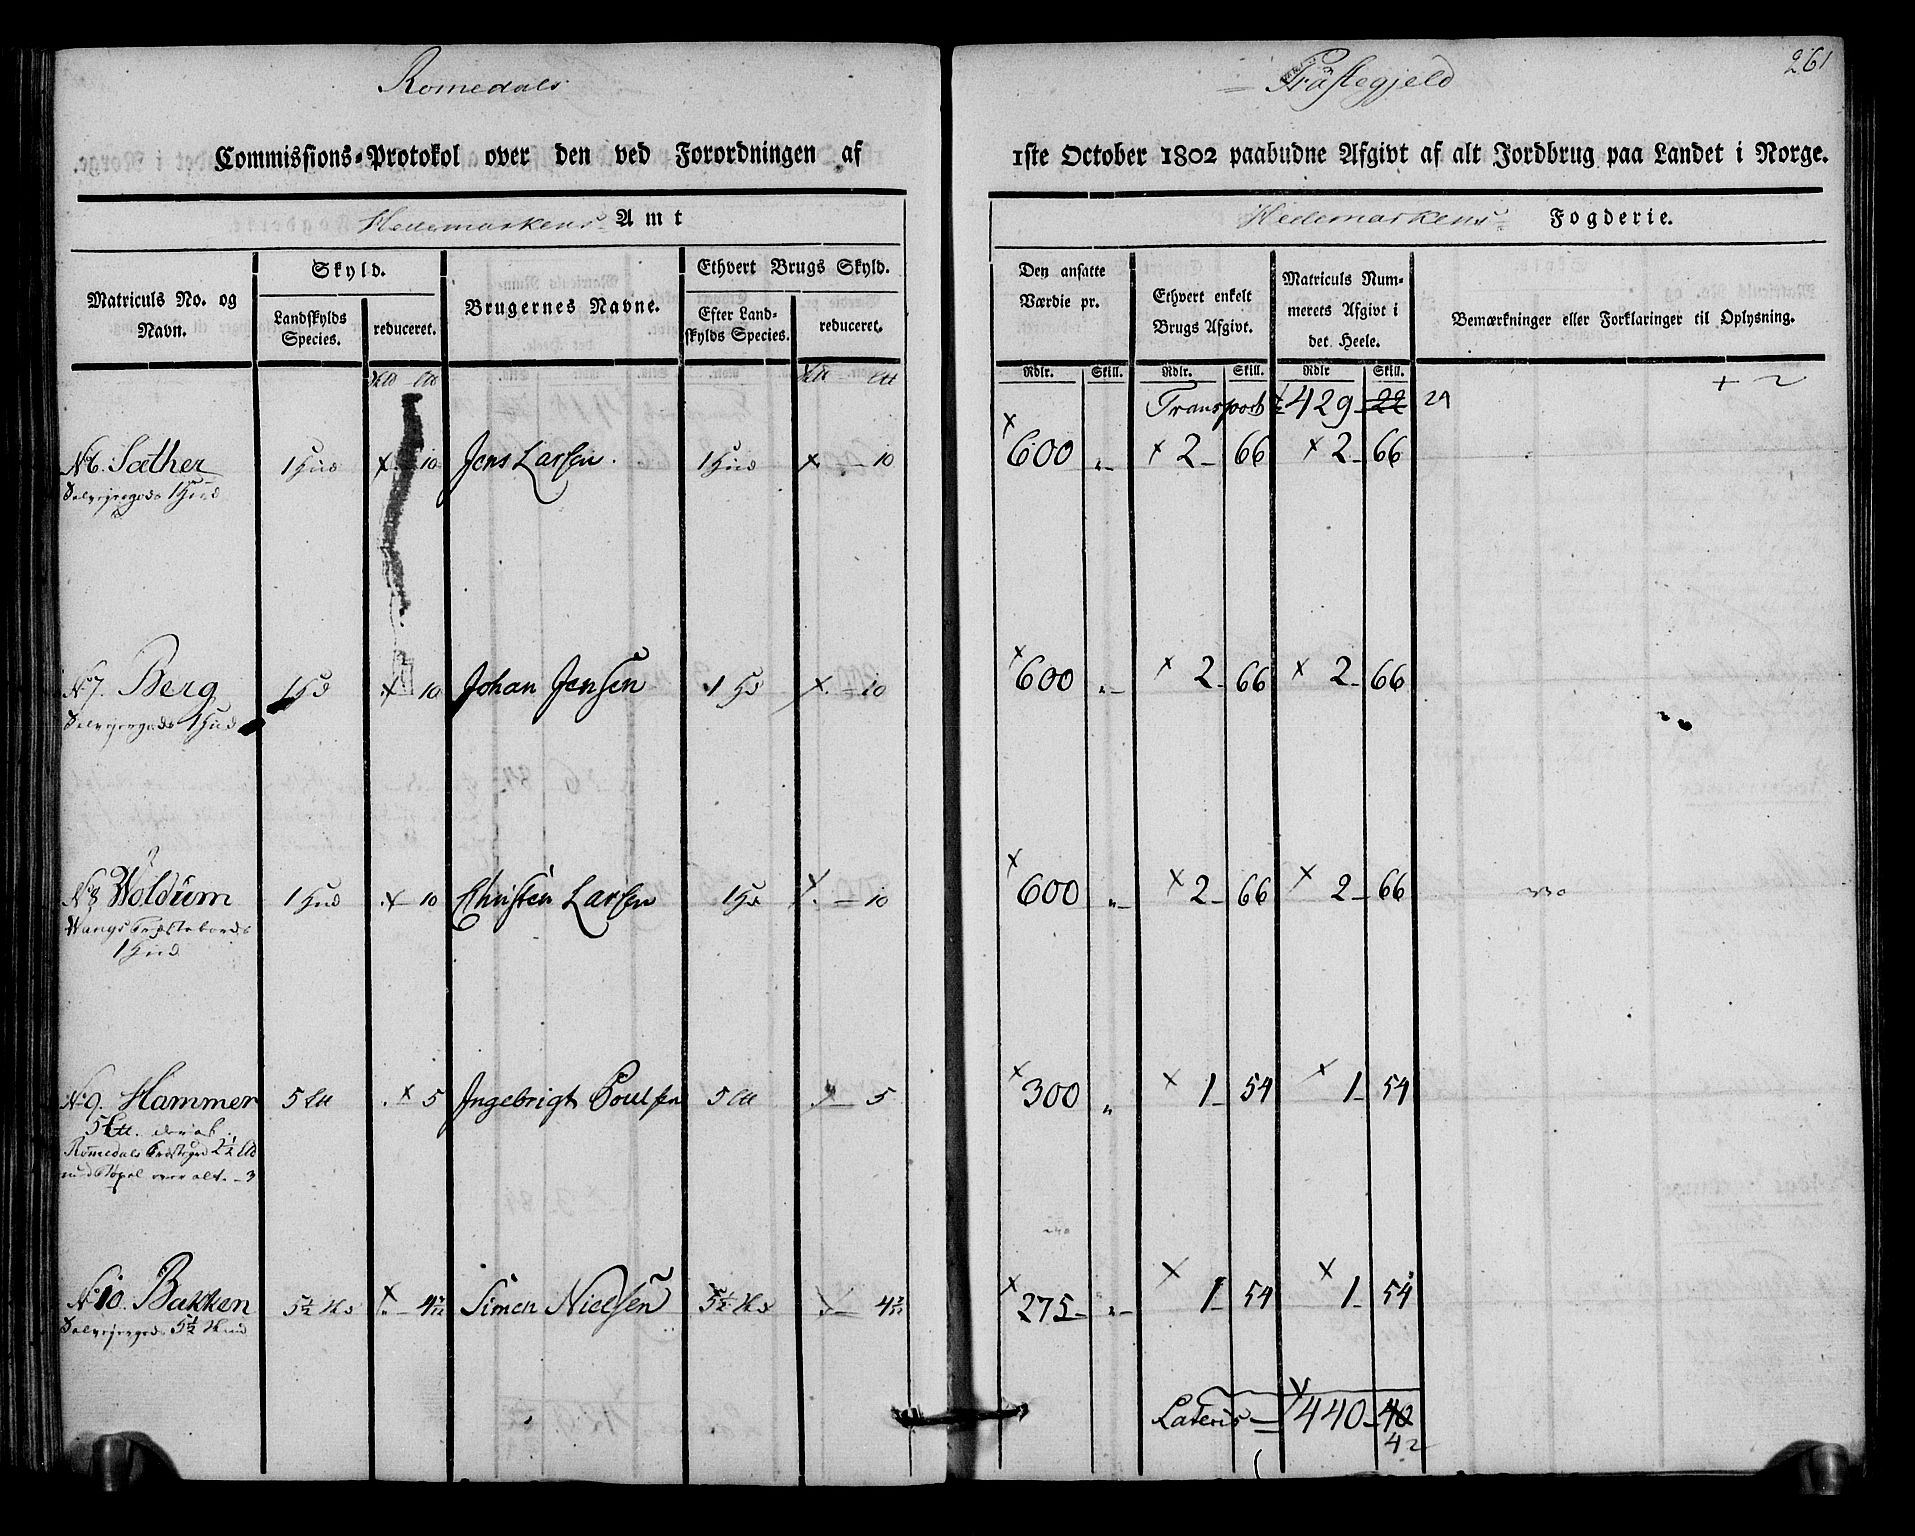 Romedals
Præstegjeld
261
Commissions-Protokol over den ved Forordningen af
1ste October 1802 paabudne Afgivt af alt Jordbrug paa Landet i Norge.
Hedemarkens Amt
Hedemarkens Fogderie.
Matriculs No. og Navn.
Skyld.
Landskylds Species.
reduceret.
Brugernes Navne.
Ethvert Brugs Skyld.
Efter Landskylds Species.
reduceret.
Den ansatte Værdie pr.
Ethvert enkelt Brugs Afgivt.
Matriculs Nummerets Afgivt i det Heele.
Bemærkninger eller Forklaringer til Oplysning.
Rdlr. Skill. Rdlr. Skill. Rdlr Skill.
Transport 429 - 22 24
No 6. Sæther 1 Hud 10 Jens Larsen. 1 Hud - 10 600 „ 2 - 66 2 - 66
Selvejergods 1 Hud
No 7. Berg 1 Hd 10 Johan Jensen 1 Hd - 10 600 „ 2 - 66 2 - 66
Selvejergods 1 Hud
No 8 Woldum 1 Hud 10 Christen Larsen 1 Hd - 10 600 „ 2 - 66 2 - 66
Wangs Præstebords
1 Hud
No 9. Hammer 5 5 Ingebrigt Poulsen 5 5 300 „ 1 - 54 1 - 54
Romedals 2 1/2
No 10. Bakken 5 1/2 Simen Nielsen 5 1/2 275 „ 1 - 54 1 - 54
Selvejergods 5 1/2
Lateris 440 - 40
42